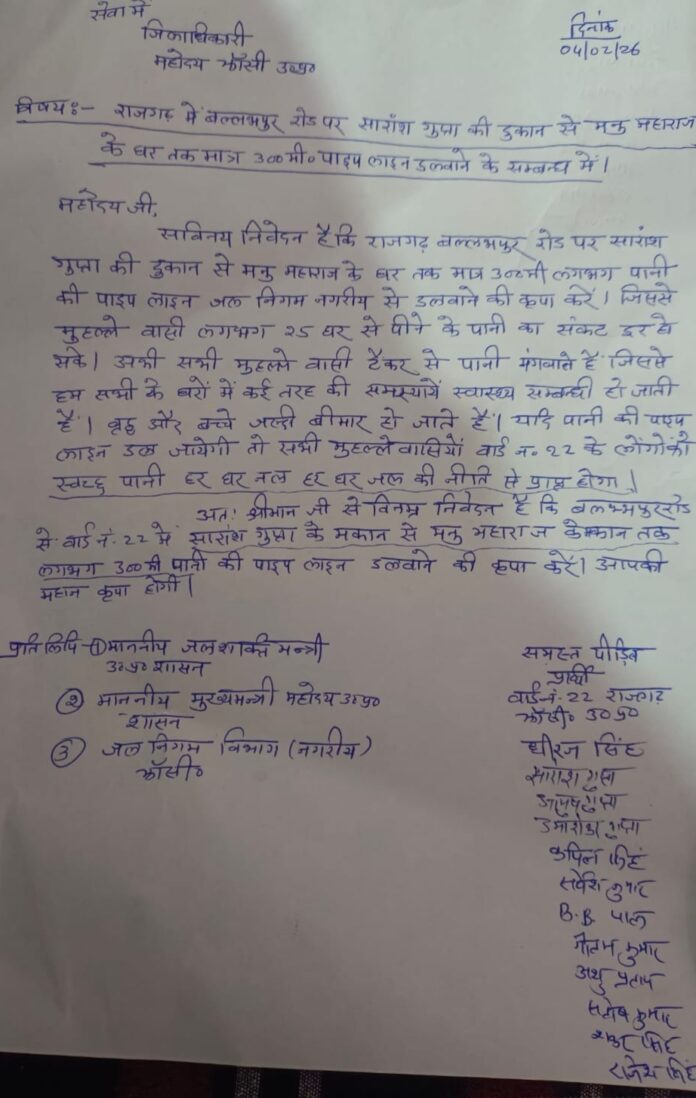 सेवा में
दिनांक
04/02/26
जिलाधिकारी
महोदय झाँसी उ०प्र०
विषयः- राजगढ़ में बल्लभपुर रोड पर सारांश गुप्ता की दुकान से मनु महाराज
के घर तक मात्र 300मी० पाइप लाइन डलवाने के सम्बन्ध में।
महोदय जी,
सविनय निवेदन है कि राजगढ़ बल्लभपुर रोड पर सारांश
गुप्ता की दुकान से मनु महाराज के घर तक मात्र 300मी लगभग पानी
की पाइप लाइन जल निगम नगरीय से डलवाने की कृपा करें। जिससे
मुहल्ले वासी लगभग 25 घर से पीने के पानी का संकट दूर हो
सके। अभी सभी मुहल्ले वासी टैंकर से पानी मंगवाते हैं जिससे
हम सभी के घरों में कई तरह की समस्यायें स्वास्थ्य सम्बन्धी हो जाती
हैं। वृद्ध और बच्चे जल्दी बीमार हो जाते हैं। यदि पानी की पाइप
लाइन डल जायेगी तो सभी मुहल्लेवासियों वार्ड न० 22 के लोंगोको
स्वच्छ पानी हर घर नल हर घर जल की नीति से प्राप्त होगा।
अतः श्रीमान जी से विनम्र निवेदन है कि बल्लभपुररोड
से वार्ड नं. 22 में सारांश गुप्ता के मकान से मनु महाराज के मकान तक
लगभग 300 मी पानी की पाइप लाइन डलवाने की कृपा करें। आपकी
महान कृपा होगी।
प्रतिलिपि-① माननीय जलशक्ति मन्त्री
उ०प्र० शासन
② माननीय मुख्यमन्त्री महोदय उ०प्र०
शासन
③ जल निगम विभाग (नगरीय)
झाँसी०
समस्त पीड़ित
प्रार्थी
वार्ड नं. 22 राजगढ़
झाँसी० उ०प्र०
धीरज सिंह
सारांश गुप्ता
गुप्ता
गुप्ता
कपिल सिंह
कुमार
B.B. पाल
गौतम कुमार
प्रताप
कुमार
सिंह
राजेश सिंह